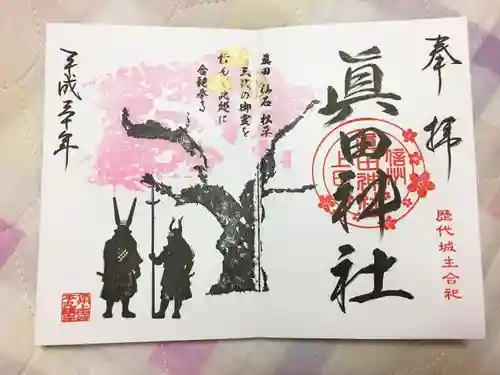 奉拝
歴代城主合祀
眞田神社
信州
上田
眞田神社
眞田 仙石 松平
三代の御霊を
合祀奉る
平成三十年